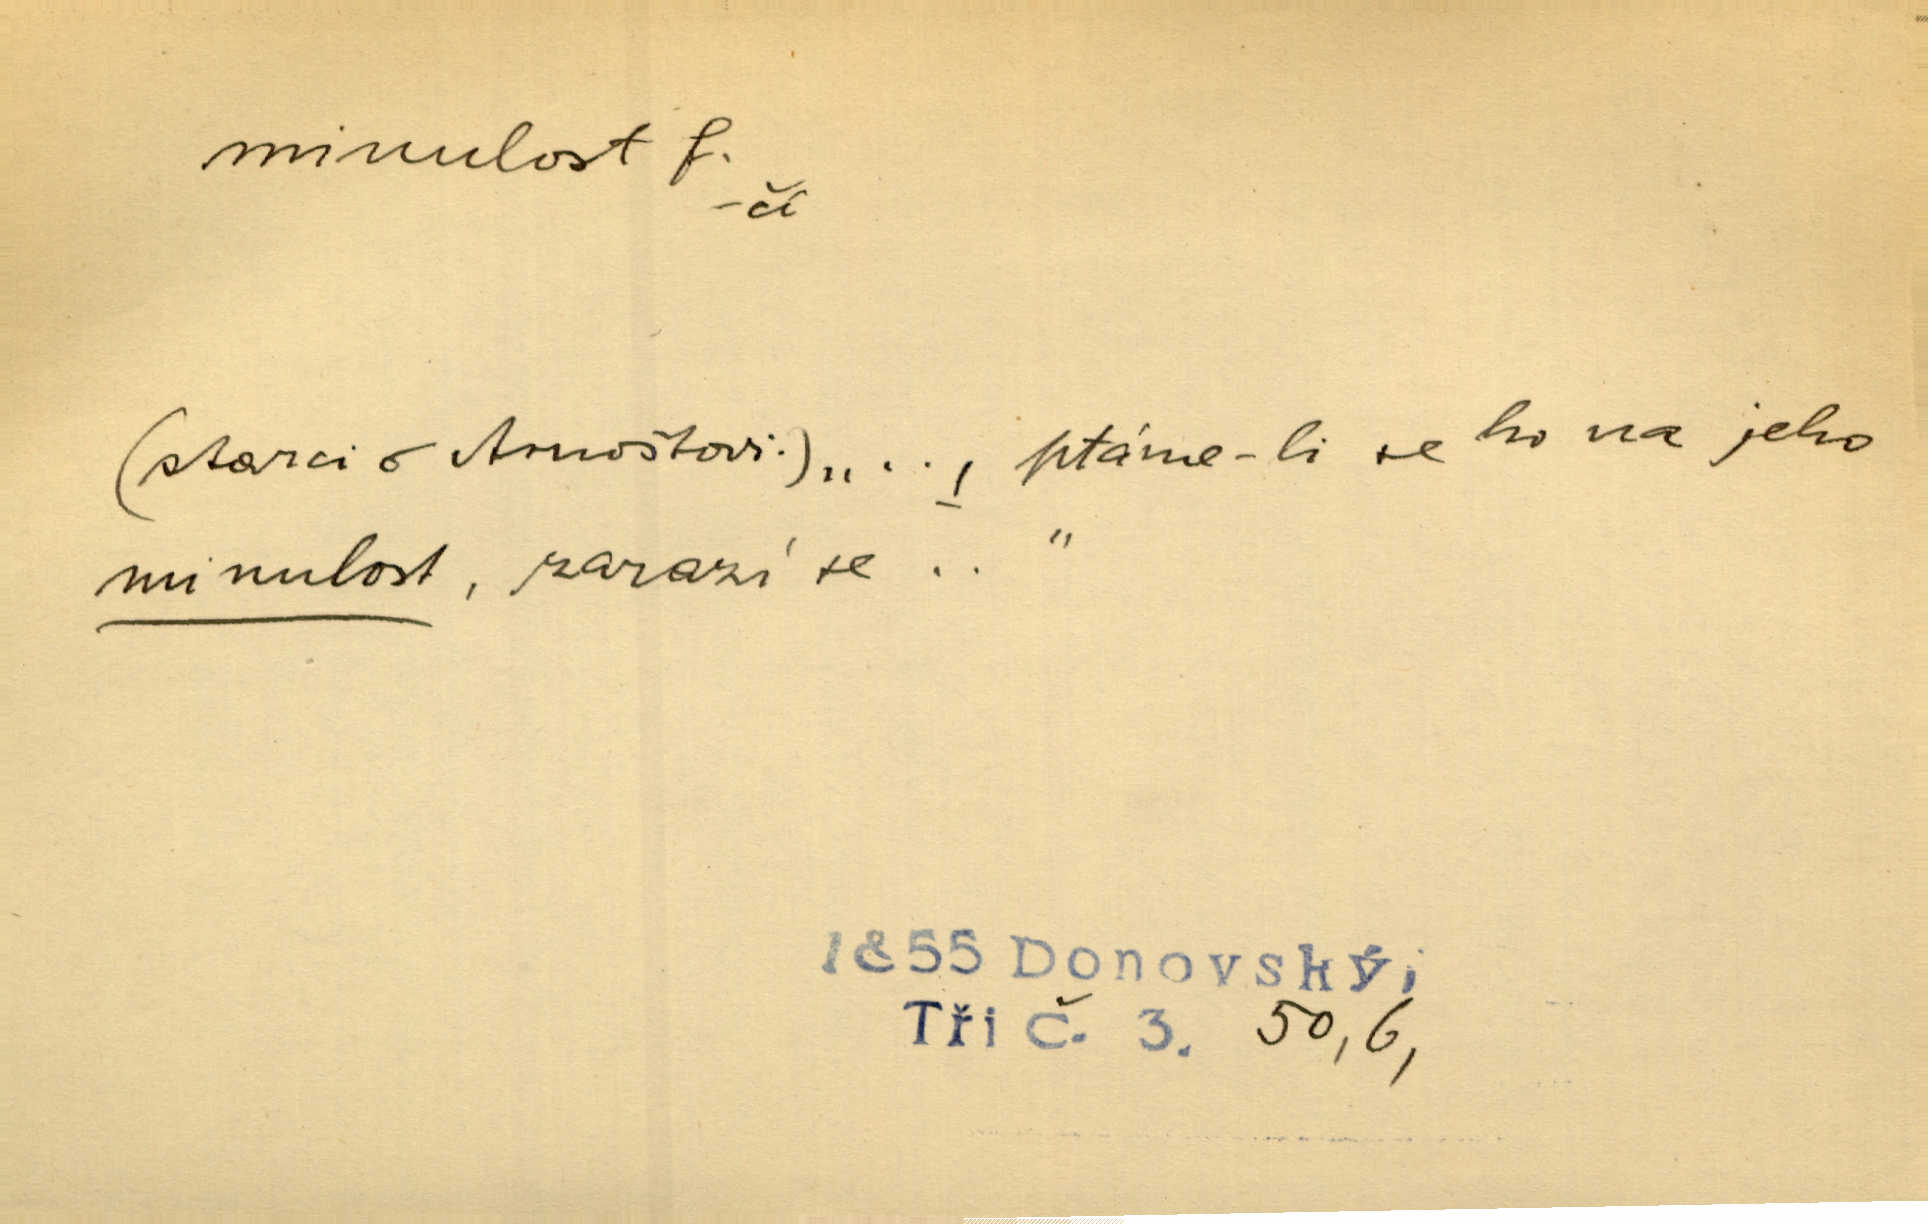 minulost f.
-čí
(starci o Arnoštovi.) „. . ., ptáme-li se ho na jeho
minulost, zarazí se . . "
1855 Donovský,
Tři č. 3. 50,6,